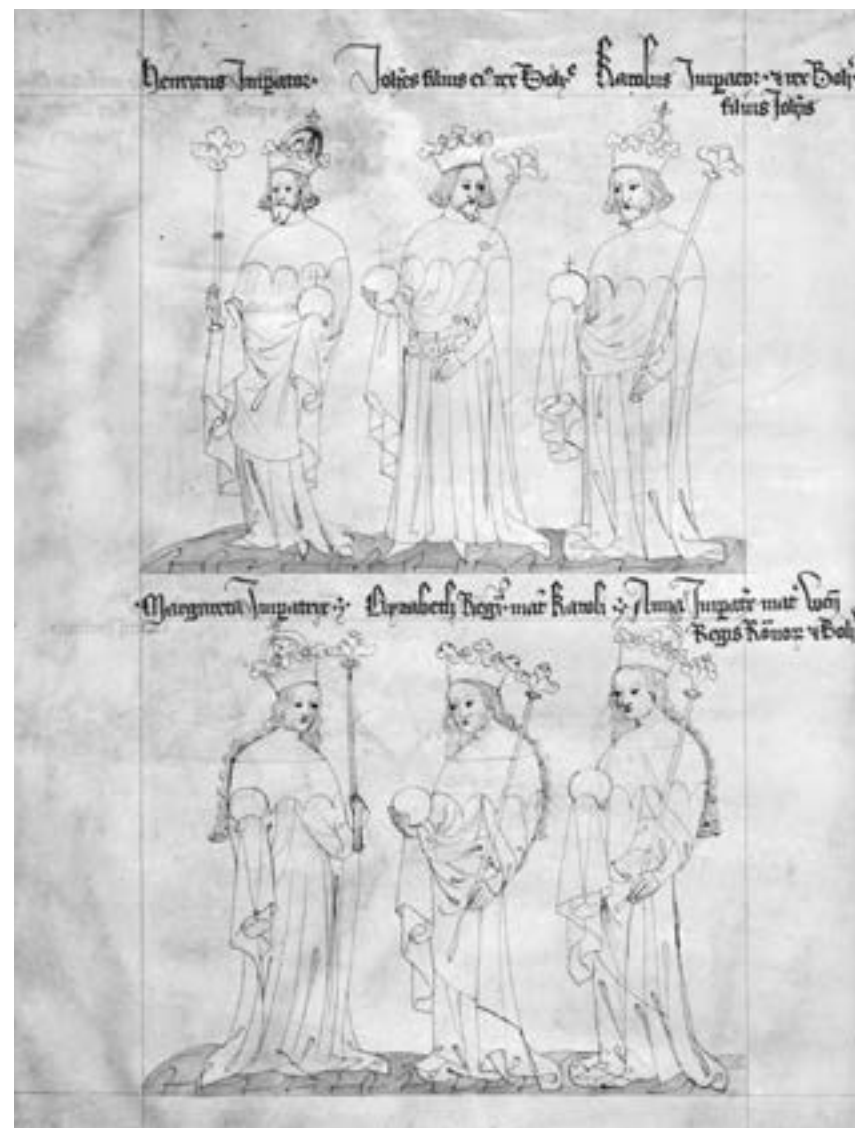 Henricus Impator · Joh̄es filius eiᵒ rex Bohᵉ Karolus Impator · ⁊ rex Boh̄
filius Joh̄is
Margareta Impatrix · Elyzabeth Regīᵃ · mat̄ Karoli · Anna Impatᵉ mat̄
Regis Romor ⁊ Boh̄